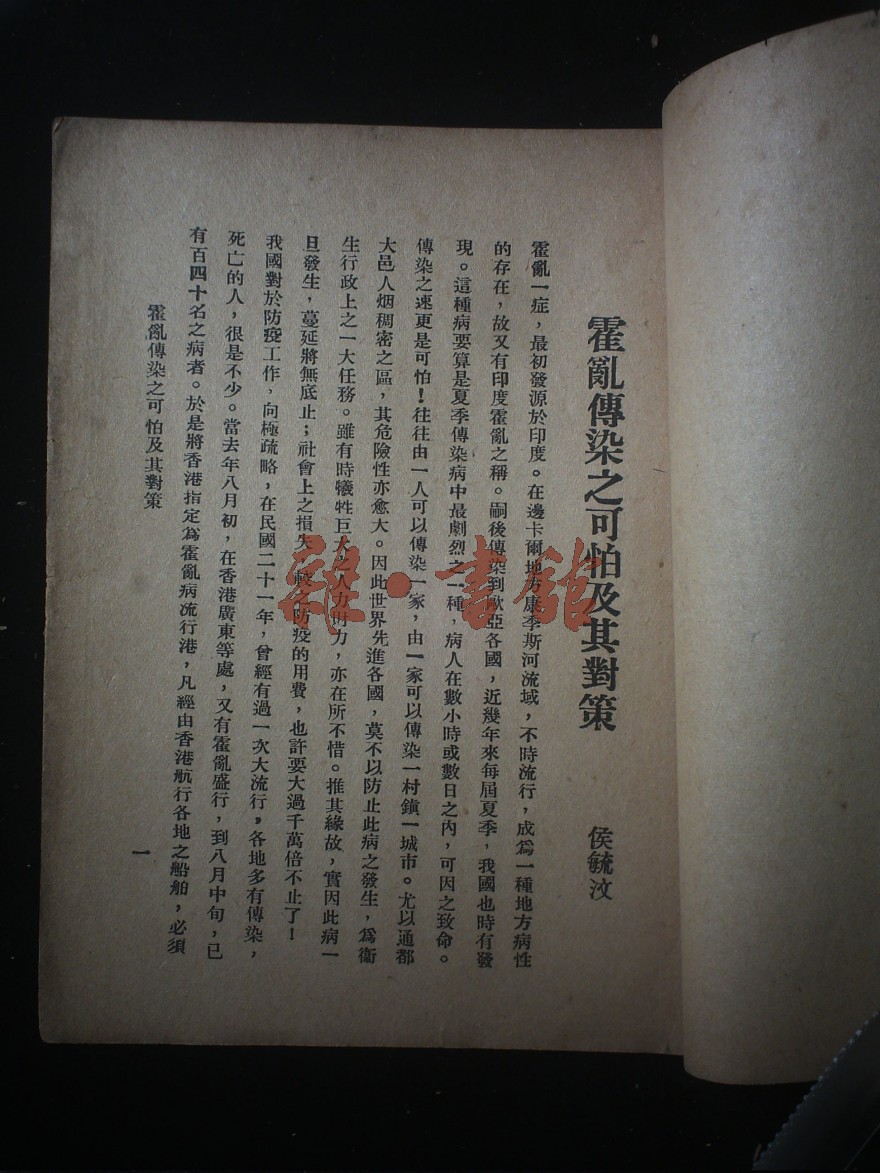 霍亂傳染之可怕及其對策
侯毓汶
霍亂一症，最初發源於印度。在邊卡爾地方康季斯河流域，不時流行，成爲一種地方病性
的存在，故又有印度霍亂之稱。嗣後傳染到歐亞各國，近幾年來每屆夏季，我國也時有發
現。這種病要算是夏季傳染病中最劇烈之一種，病人在數小時或數日之內，可因之致命。
傳染之速更是可怕！往往由一人可以傳染一家，由一家可以傳染一村鎭一城市。尤以通都
大邑人烟稠密之區，其危險性亦愈大。因此世界先進各國，莫不以防止此病之發生，爲衞
生行政上之一大任務。雖有時犧牲巨大之人力財力，亦在所不惜。推其緣故，實因此病一
旦發生，蔓延將無底止；社會上之損失，較之防疫的用費，也許要大過千萬倍不止了！
我國對於防疫工作，向極疏略，在民國二十一年，曾經有過一次大流行，各地多有傳染，
死亡的人，很是不少。當去年八月初，在香港廣東等處，又有霍亂盛行，到八月中旬，已
有百四十名之病者。於是將香港指定爲霍亂病流行港，凡經由香港航行各地之船舶，必須
霍亂傳染之可怕及其對策
一
雜·書館